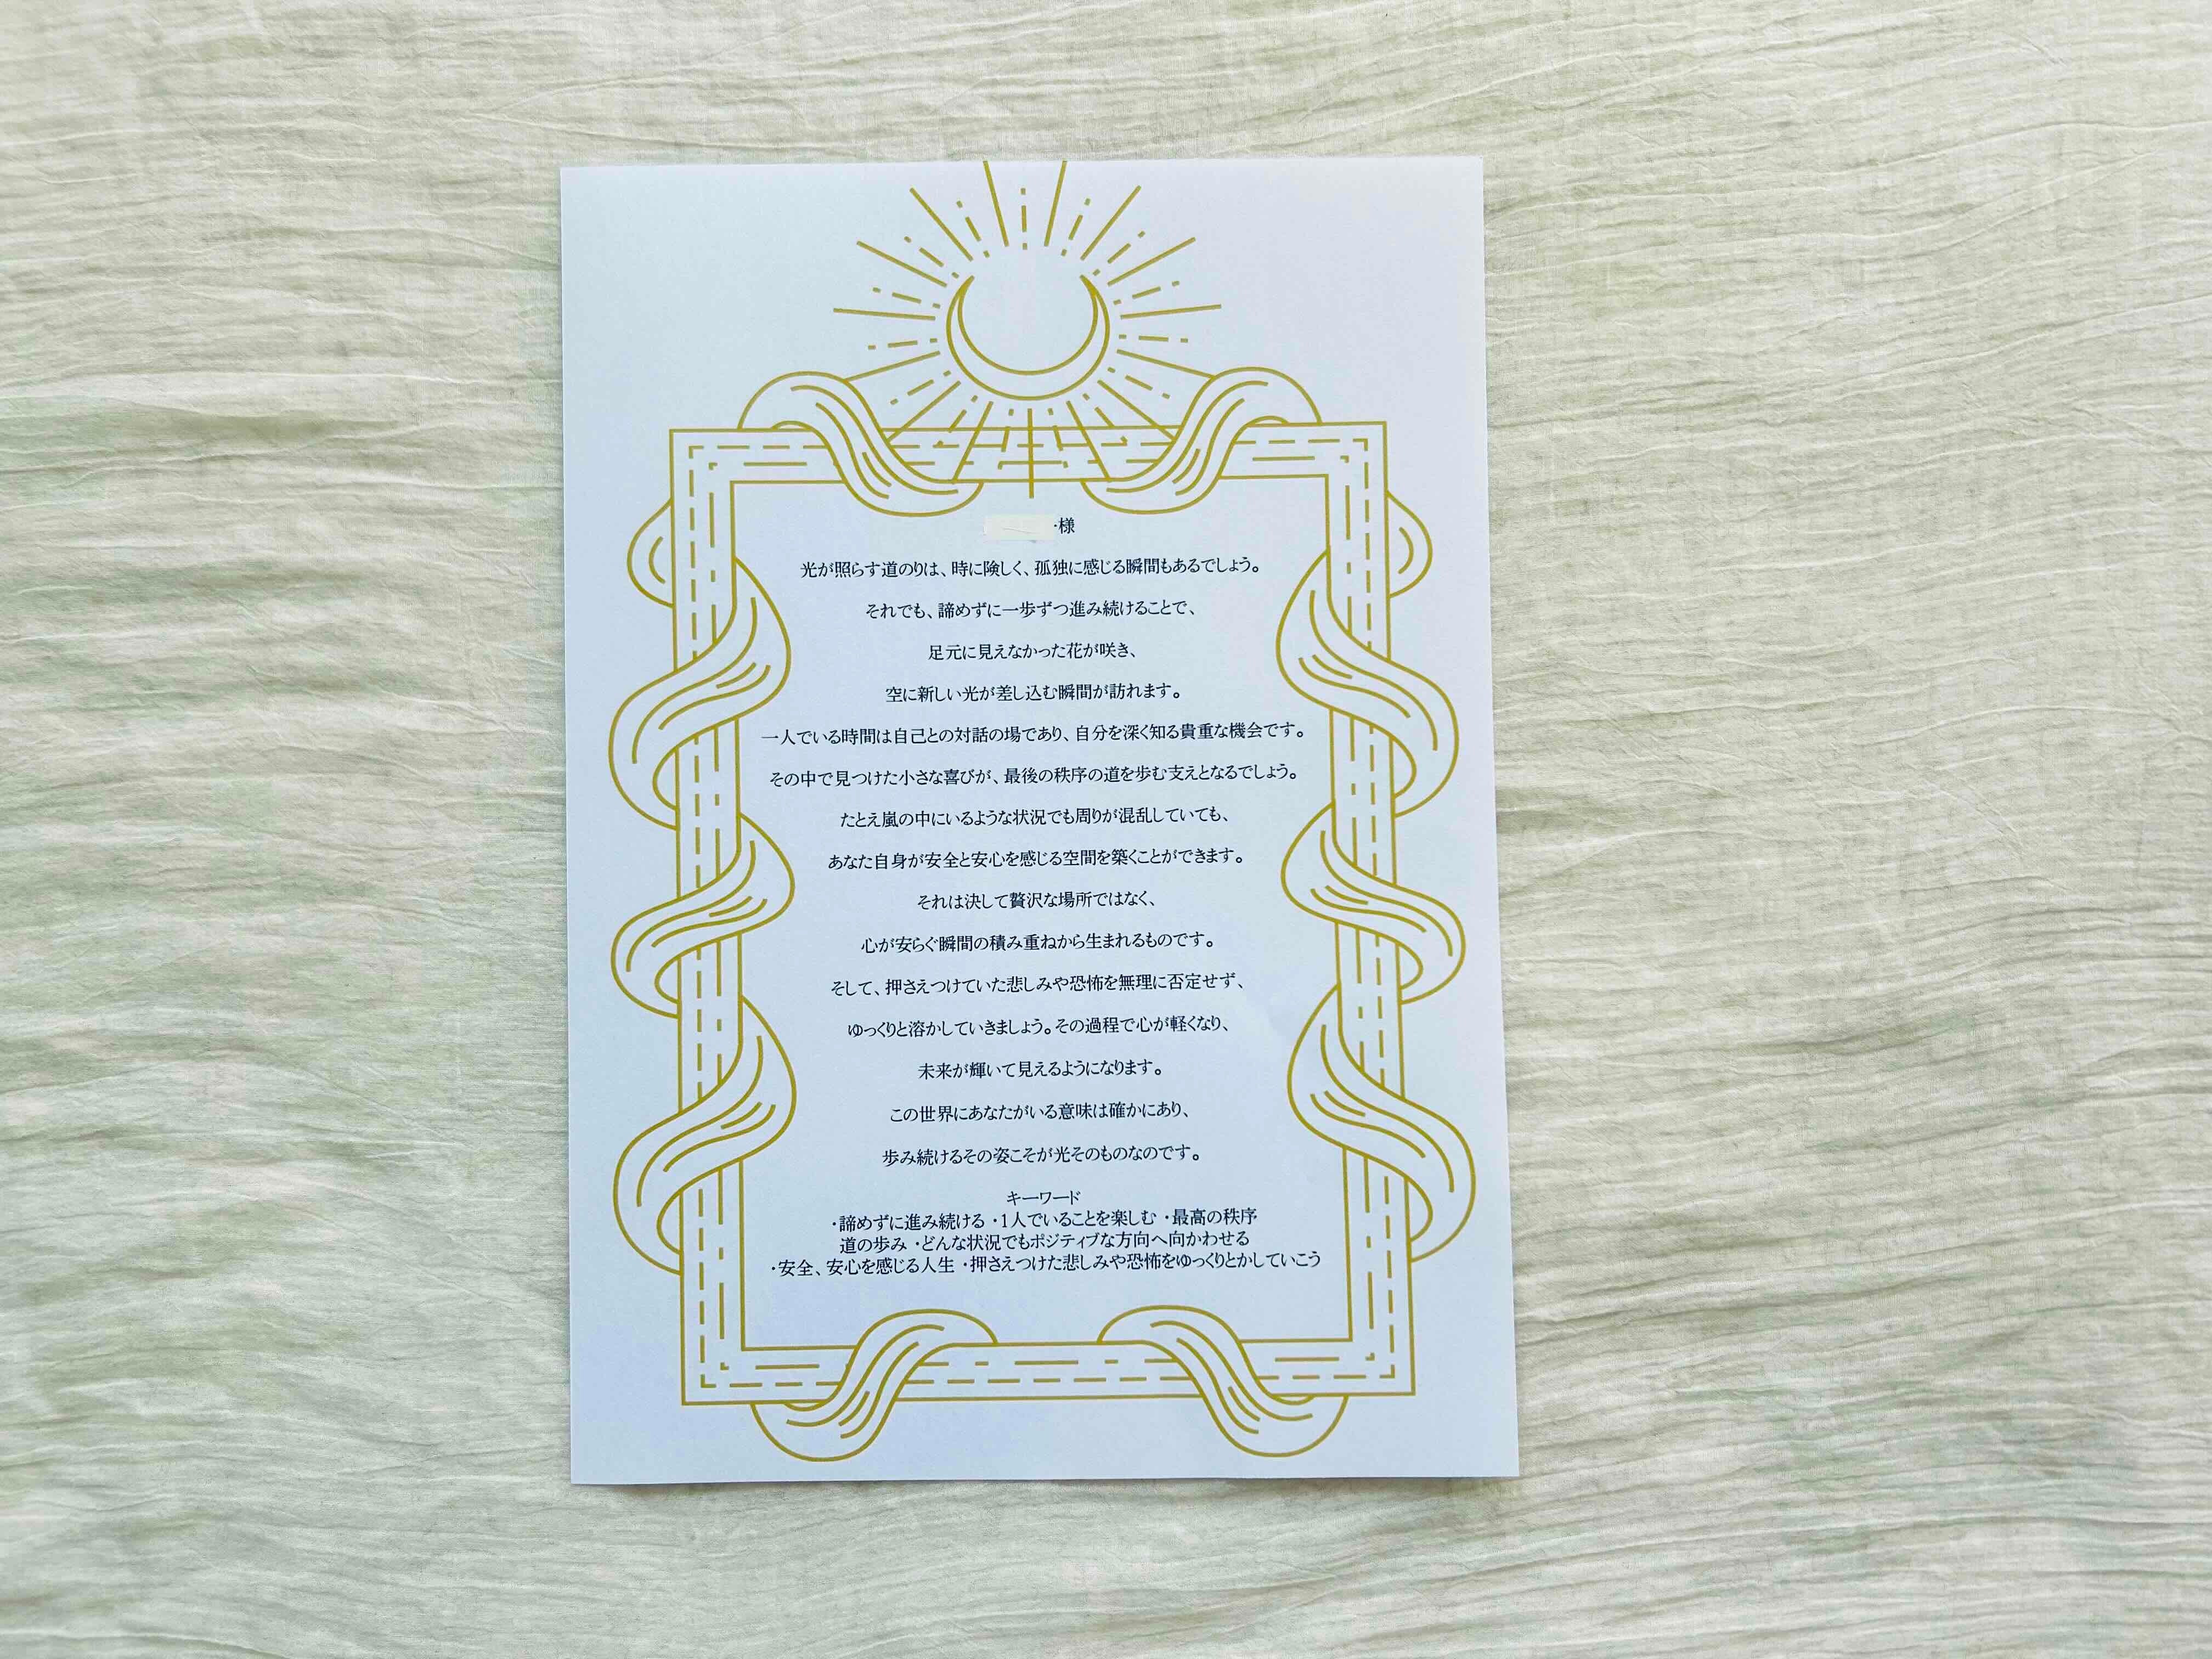 様
光が照らす道のりは、時に険しく、孤独に感じる瞬間もあるでしょう。
それでも、諦めずに一歩ずつ進み続けることで、
足元に見えなかった花が咲き、
空に新しい光が差し込む瞬間が訪れます。
一人でいる時間は自己との対話の場であり、自分を深く知る貴重な機会です。
その中で見つけた小さな喜びが、最後の秩序の道を歩む支えとなるでしょう。
たとえ嵐の中にいるような状況でも周りが混乱していても、
あなた自身が安全と安心を感じる空間を築くことができます。
それは決して贅沢な場所ではなく、
心が安らぐ瞬間の積み重ねから生まれるものです。
そして、押さえつけていた悲しみや恐怖を無理に否定せず、
ゆっくりと溶かしていきましょう。その過程で心が軽くなり、
未来が輝いて見えるようになります。
この世界にあなたがいる意味は確かにあり、
歩み続けるその姿こそが光そのものなのです。
キーワード
・諦めずに進み続ける ・1人でいることを楽しむ ・最高の秩序
道の歩み ・どんな状況でもポジティブな方向へ向かわせる
・安全、安心を感じる人生 ・押さえつけた悲しみや恐怖をゆっくりとかしていこう